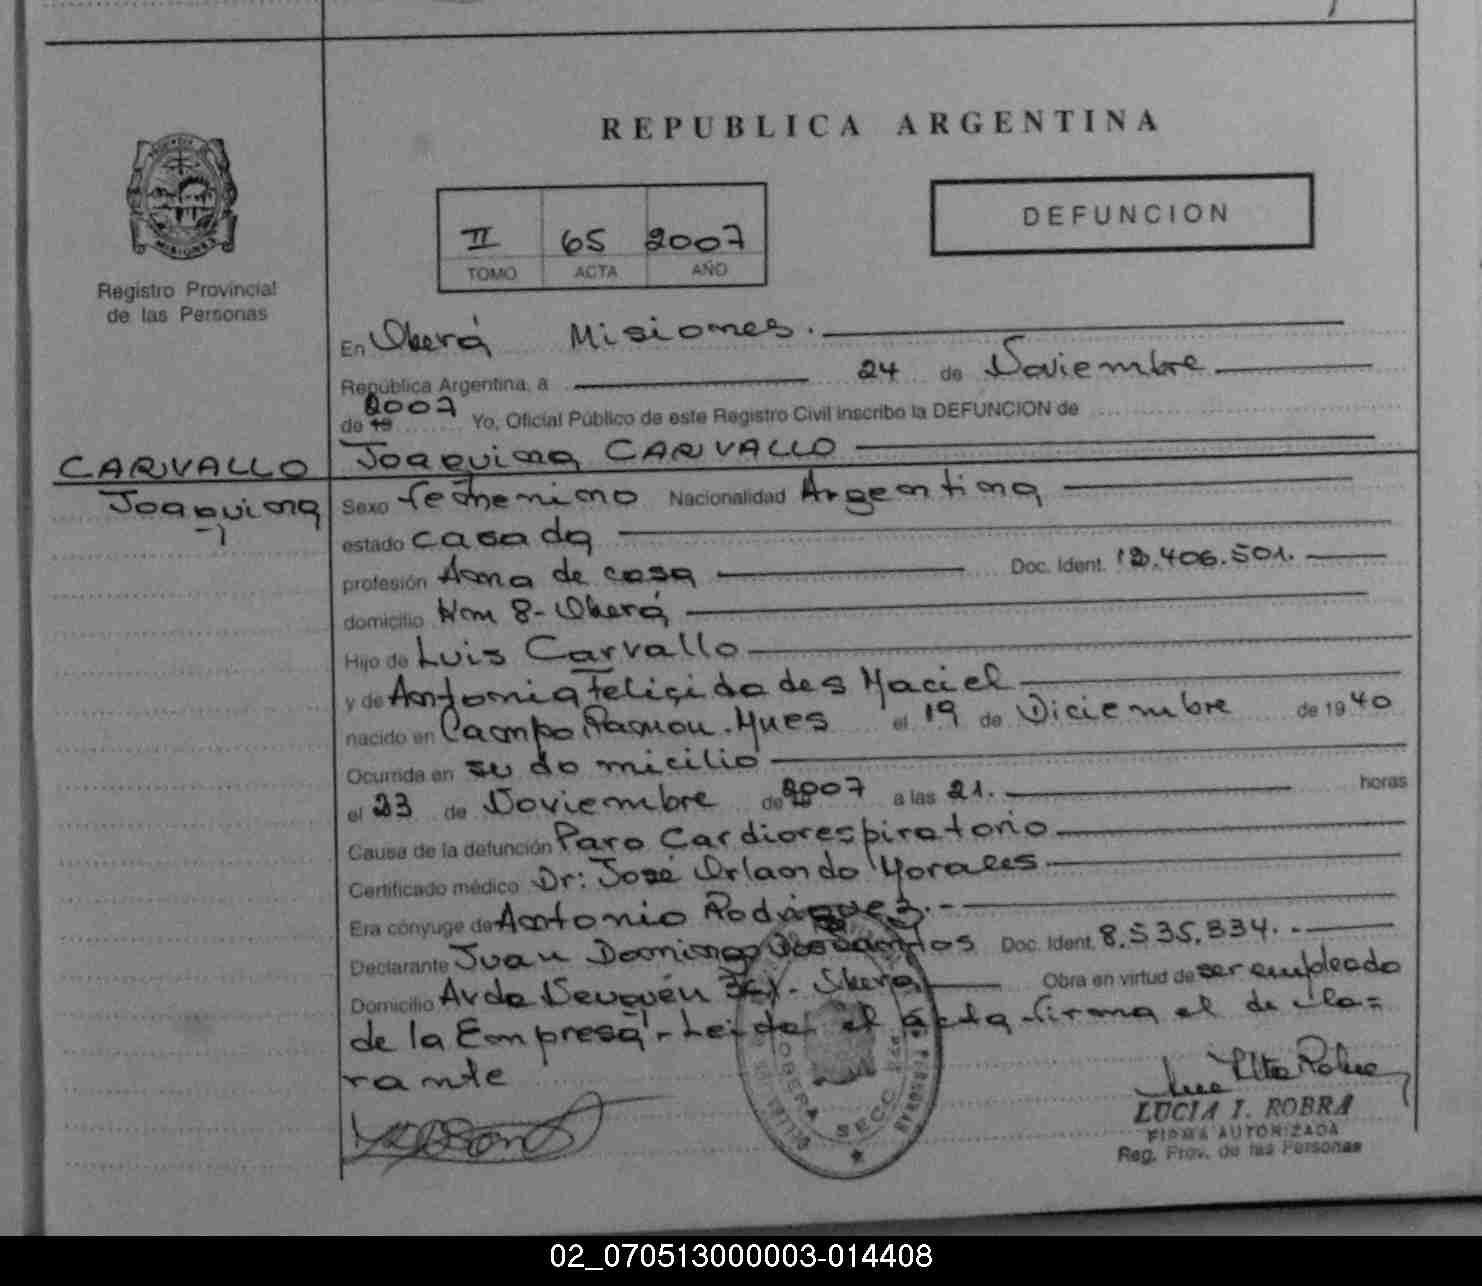 REPUBLICA ARGENTINA
DEFUNCION
II 65 2007
TOMO ACTA AÑO
Registro Provincial
de las Personas
En Oberá Misiones.
República Argentina, a 24 de Noviembre
de 19 2007 Yo, Oficial Público de este Registro Civil inscribo la DEFUNCION de
Joaquina CARVALLO
CARVALLO
Joaquina
Sexo femenino Nacionalidad Argentina
estado casada
profesión Ama de casa Doc. Ident. 12.406.501.
domicilio Km 8- Oberá
Hijo de Luis Carvallo
y de Antonia Felicidades Maciel
nacido en Campo Ramon. Mnes el 19 de Diciembre de 1940
Ocurrida en su domicilio
el 23 de Noviembre de 2007 a las 21. horas
Causa de la defunción Paro Cardiorespiratorio
Certificado médico Dr: José Orlando Morales
Era cónyuge de Antonio Rodriguez.-
Declarante Juan Domingo Doc. Ident. 8.535.334.-
Domicilio Avda Neuquén - Oberá Obra en virtud de ser empleado
de la Empresa - Leida el acta firma el decla=
rante
OBERA SECC
LUCIA I. ROBRA
FIRMA AUTORIZADA
Reg. Prov. de las Personas
02_070513000003-014408